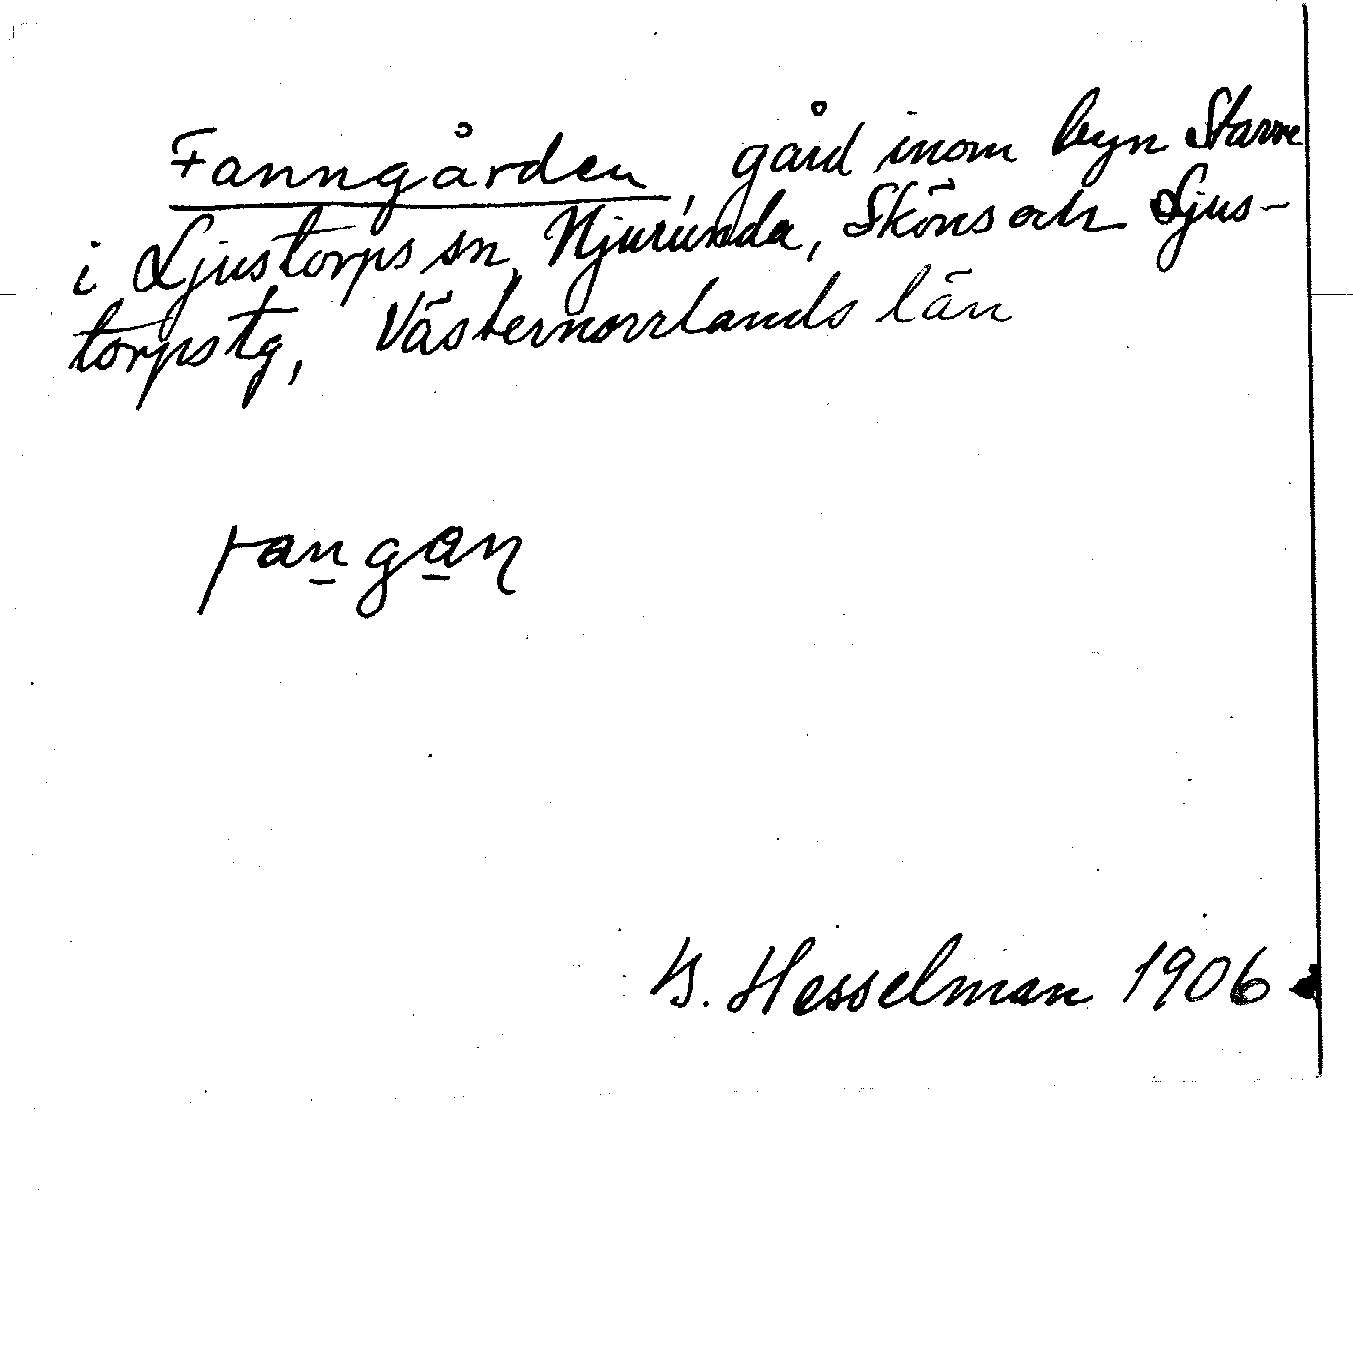 Fanngården, gård inom byn Starre
i Ljustorps sn, Njurunda, Sköns och Ljus-
torps tg, Västernorrlands län
fangan
B. Hesselman 1906